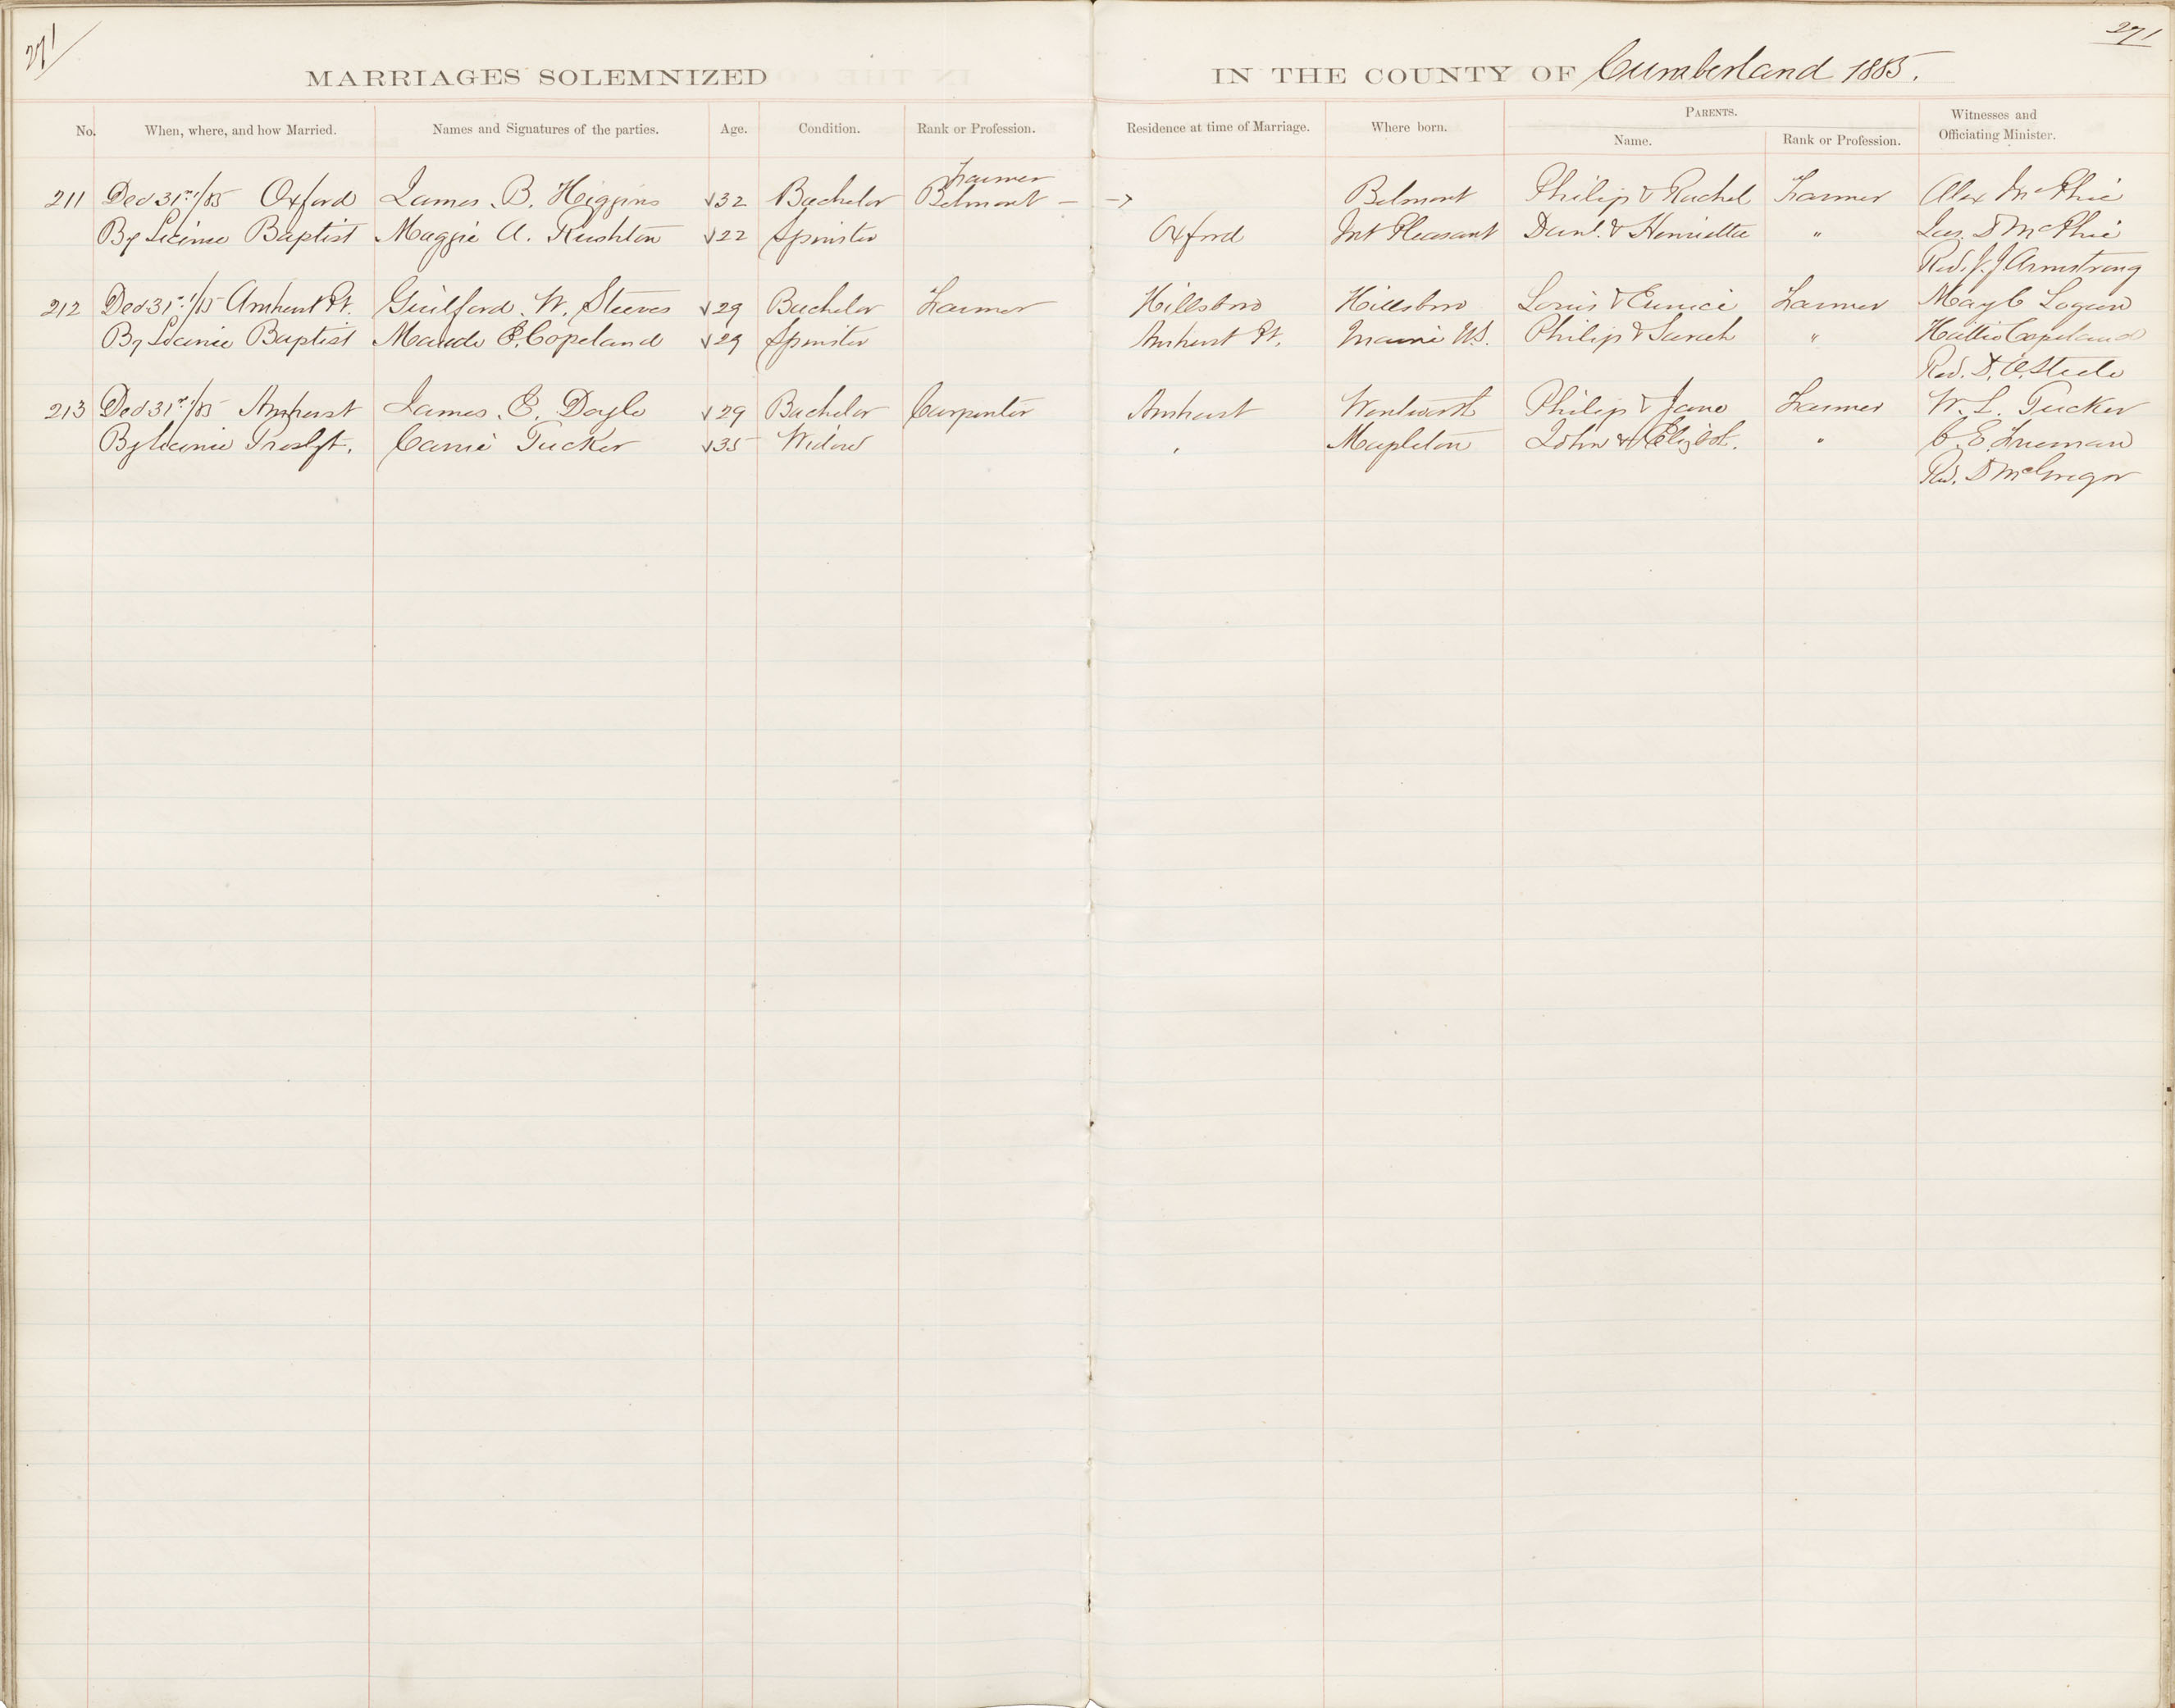 271
271
MARRIAGES SOLEMNIZED IN THE COUNTY OF Cumberland 1885.
No. When, where, and how Married. Names and Signatures of the parties. Age. Condition. Rank or Profession. Residence at time of Marriage. Where born. PARENTS. Name. Rank or Profession. Witnesses and Officiating Minister.
Farmer
211 Dec 31st/85 Oxford James. B. Higgins √32 Bachelor Belmont — → Belmont Philip & Rachel Farmer Alex McPhie
By License Baptist Maggie A. Rushton √22 Spinster Oxford Mt Pleasant Danl. & Henrietta " Jas. D McPhie
Revd. J. J Armstrong
212 Dec 31st/85 Amherst Pt. Guilford. W. Steeves √29 Bachelor Farmer Hillsboro Hillsboro Louis & Eunice Farmer May C Logan
By License Baptist Maude E. Copeland √29 Spinster Amherst Pt. Maine U.S. Philip & Sarah " Hattie Copeland
Rev. D. A. Steele
213 Dec 31st/85 Amherst James. E. Doyle √29 Bachelor Carpenter Amherst Wentworth Philip & Jane Farmer W. L. Tucker
By License Presbyt. Carrie Tucker √35 Widow " Mapleton John & Elizbt. " C. E. Freeman
Rev. D McGregor